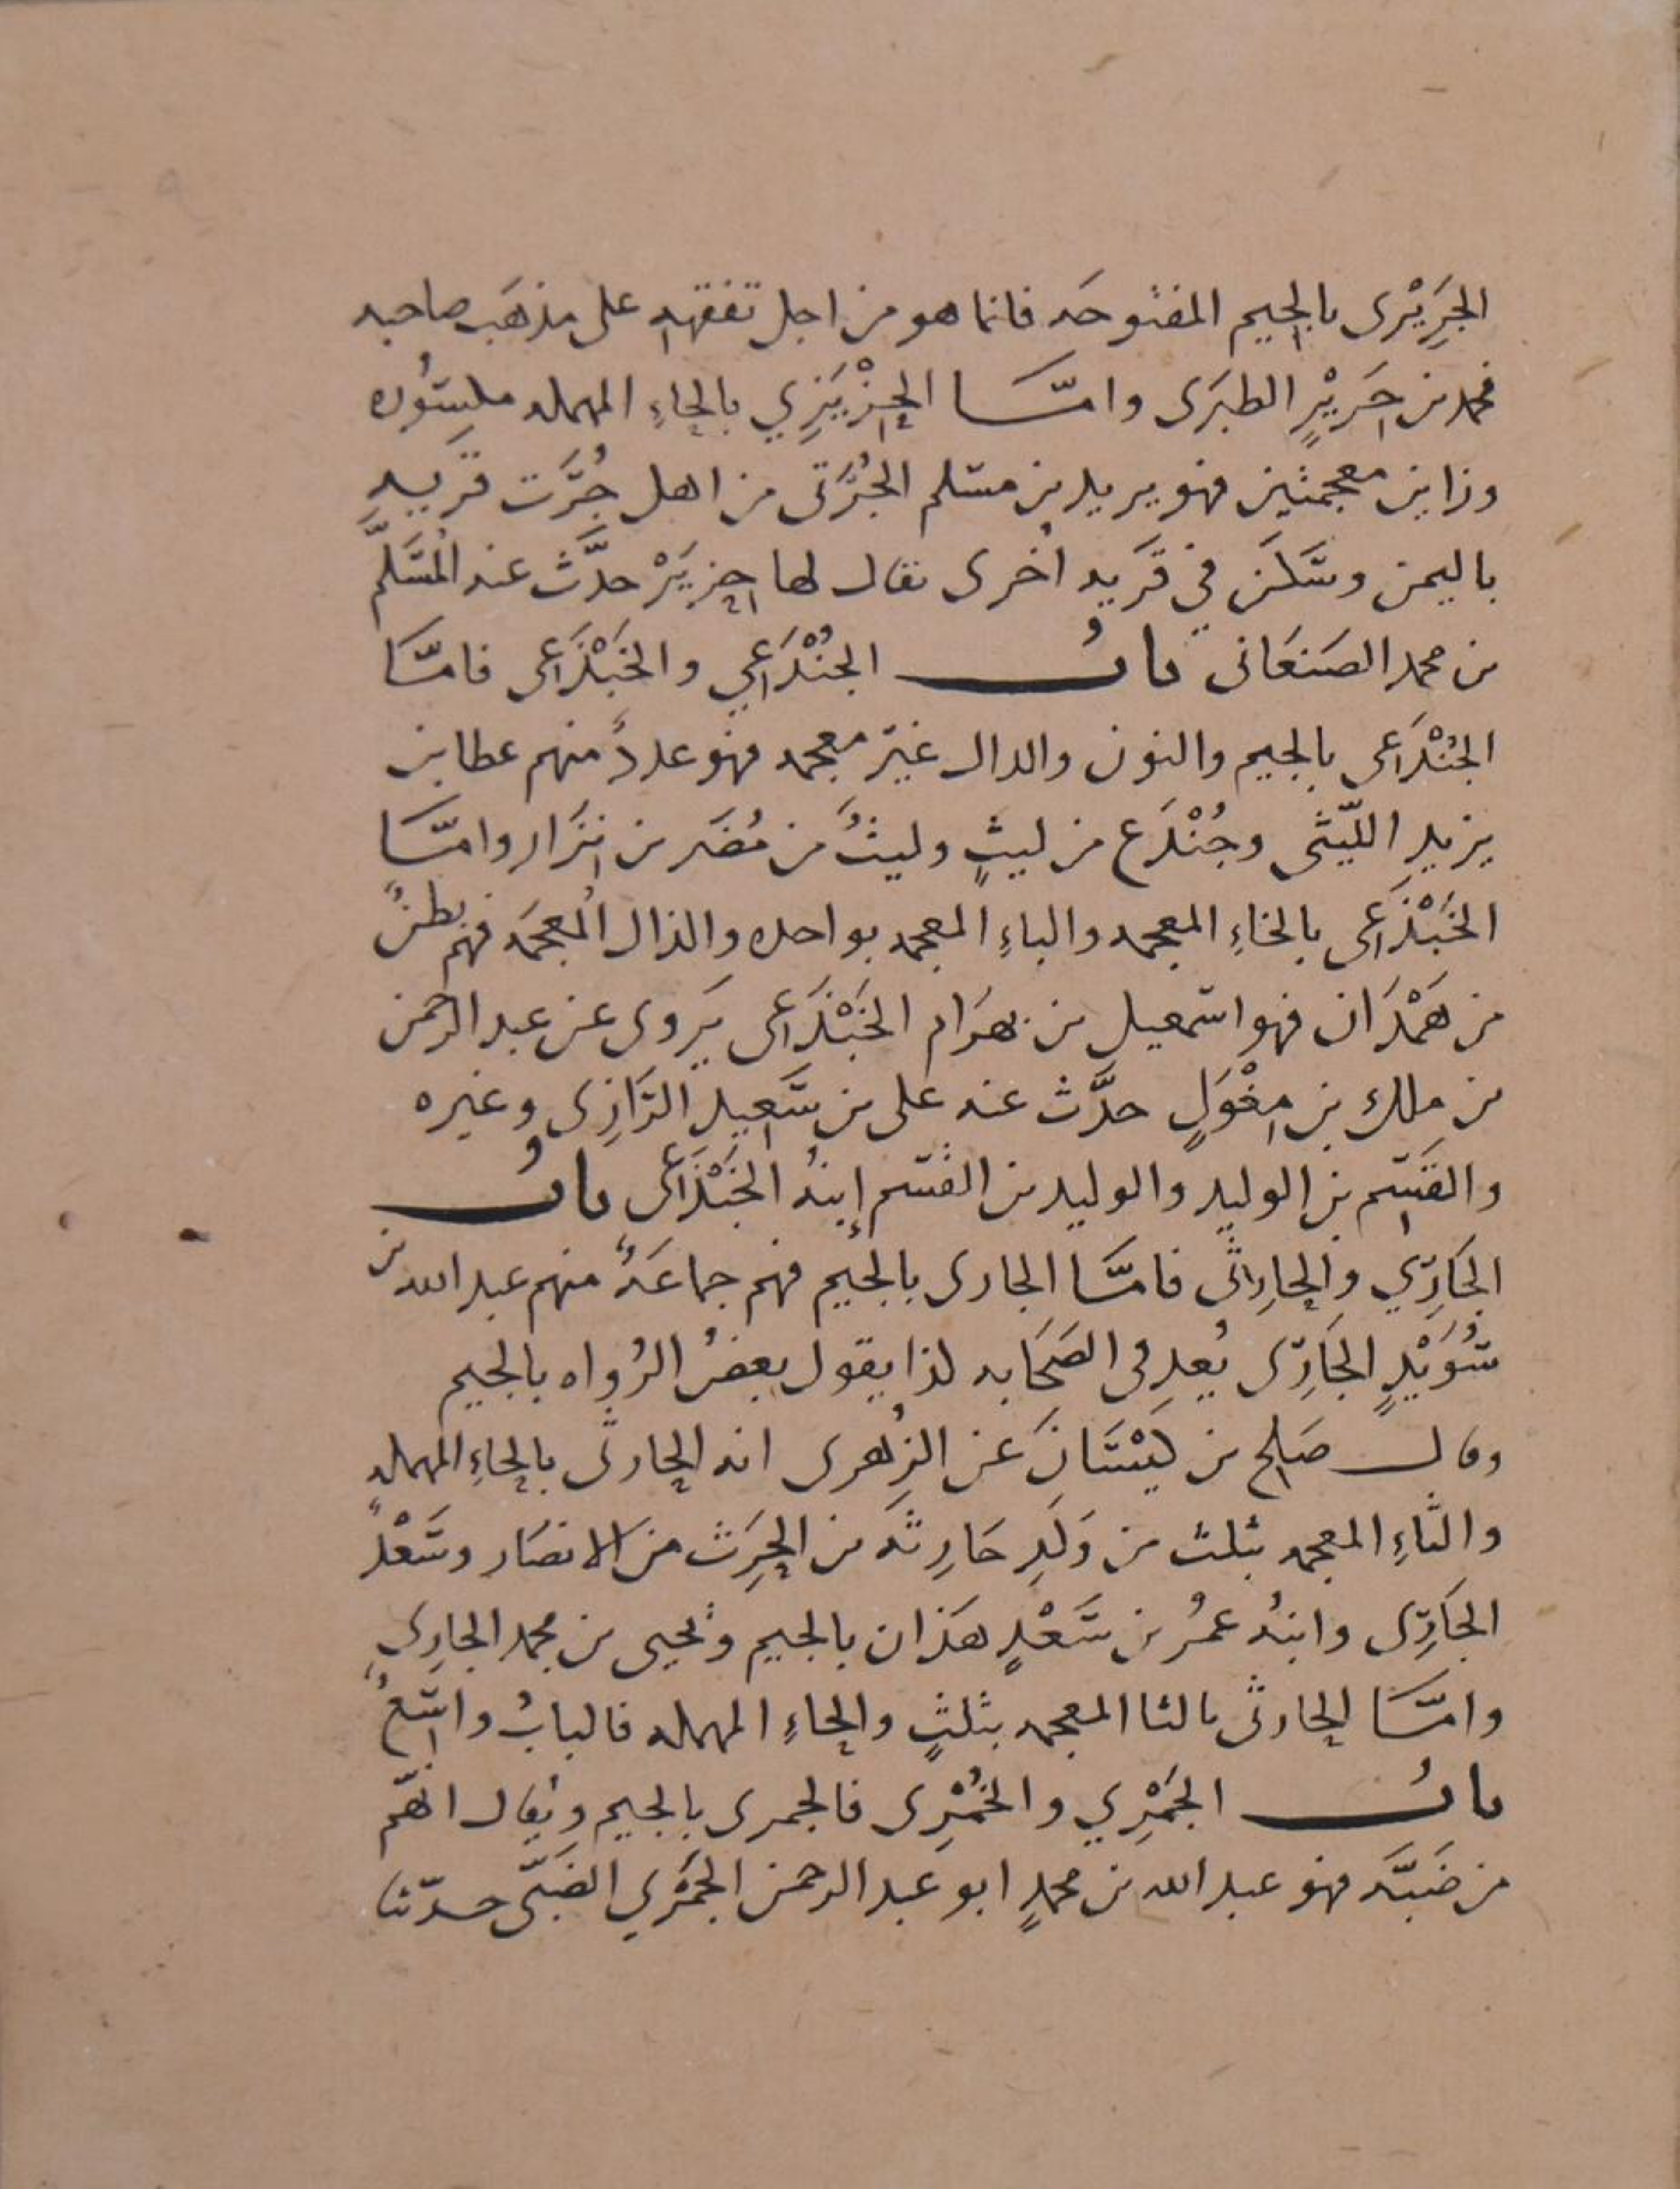 الجَرِيْرى بالجيم المفتوحَه فانما هو من اجل تفقهه على مذهَب صاحبه
محمد بن جَرِيْرٍ الطبَرى وامَّا الحِزْيَزِي بالحاءِ المهمله مكسُوره
وزاين معجمتين فهو يريد بن مسلم الجُرَتى من اهل جُرَت قريه
باليمن وسَكَن في قَريه اُخرى يقال لها حِزيَزْ حدَّث عنه المُسَلَّم
بن محمد الصَنعَانى باب الجُنْدَعِي والخَبْذَعى فامَّا
الجُنْدَعى بالجيم والنون والدال غيرُ معجمه فهو عددٌ منهم عطا بن
يزيدِ اللَّيثى وجُنْدَع من ليثٍ وليثٌ من مُضَر بن نِزَار وامَّا
الخَبْذَعى بالخاءِ المعجمه والباءِ المعجمه بواحده والذال المُعجمَه فهم بطنٌ
من هَمْدَان فهو اسمعيل بن بهرَام الخَبْذَعى يَروى عن عبد الرحمن
بن ملك بن مِغْوَلٍ حدَّث عنه على بن سَعِيدٍ الرَازِى وغيره
والقَسِم بن الوليد والوليد بن القسم إبنهُ الخَبْذَعى بابُ
الجَارِي والحارِثى فامَّا الجارى بالجيم فهم جماعَةٌ منهم عبد الله بن
سُوَيْدٍ الجَارِى يُعد فى الصَحَابه لذا يقول بعضُ الرُواه بالجيم
وقال صَلِح بن كَيْسَانَ عن الزُهرى انه الحارثى بالحاءِ المهمله
والثاءِ المعجمه بثلث من وَلَدِ حَارِثَه من الحَرِث من الانصَار وسَعْدٌ
الجَارِى وابنهُ عمُر بن سَعْدٍ هَذان بالجيم ويَحيى بن محمد الجارِى
وامَّا الحارثى بالثا المعجمه بثلثٍ والحاءِ المهمله فالبابُ واسِعٌ
بابُ الجَمْرِي والخُمْرِى فالجمرى بالجيم ويُقال انهم
من ضَبَّه فهو عبد الله بن محمدٍ ابو عبد الرحمن الجَمْرِي الضَبّى حدّثنا